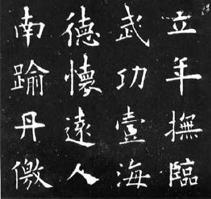 立年撫臨
武功壹海
德懷遠人
南踰丹徼